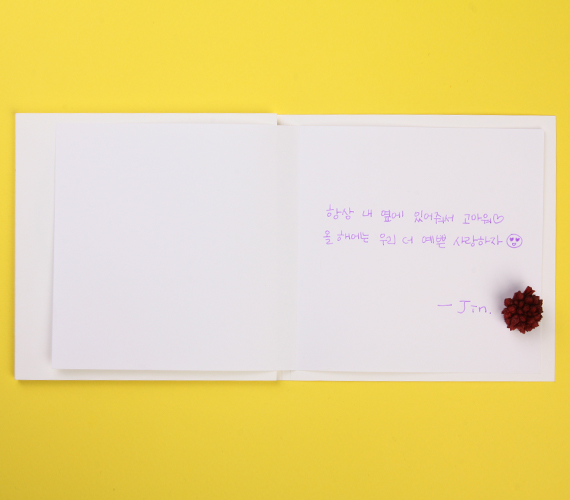 항상 내 옆에 있어줘서 고마워♡
올 해에는 우리 더 예쁜 사랑하자
- Jin.